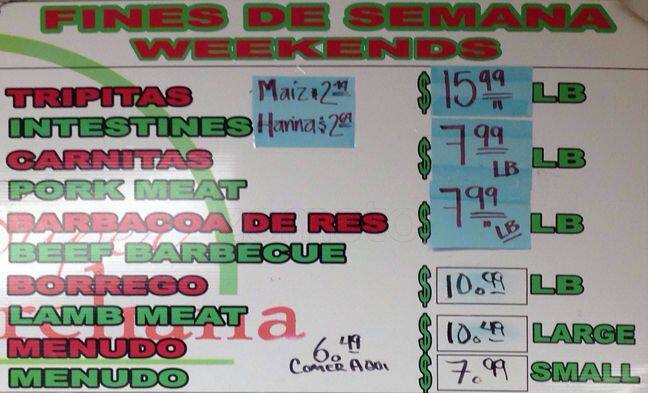 FINES DE SEMANA
WEEKENDS
TRIPITAS Maiz $2.49 $15.99 LB
INTESTINES Harina $2.69
CARNITAS $7.99 LB LB
PORK MEAT
BARBACOA DE RES $7.99 LB LB
BEEF BARBECUE
BORREGO $10.99 LB
LAMB MEAT
MENUDO 6.49 COMER AQUI $10.49 LARGE
MENUDO $7.99 SMALL